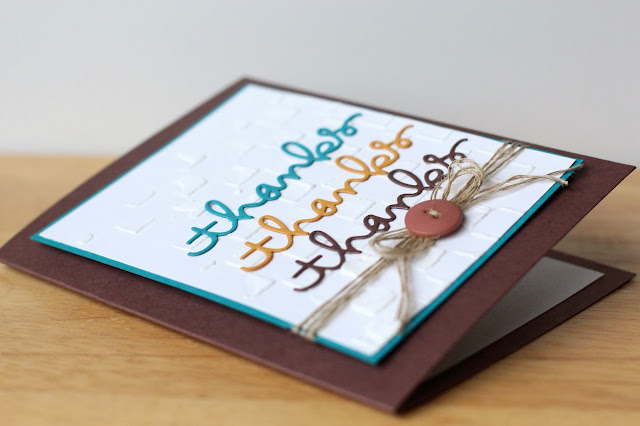 thanks
thanks
thanks